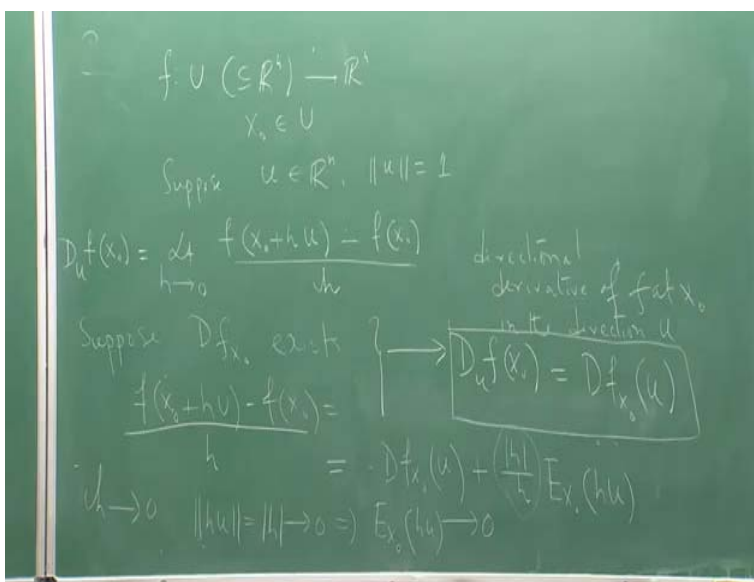 f: U (⊆ ℝⁿ) → ℝⁿ
x₀ ∈ U
Suppose u ∈ ℝⁿ, ||u|| = 1
D_u f(x₀) = Lt_{h→0} (f(x₀+hu) - f(x₀))/h
directional
derivative of f at x₀
in the direction u
Suppose Df_{x₀} exists } → D_u f(x₀) = Df_{x₀}(u)
(f(x₀+hu) - f(x₀))/h =
= Df_{x₀}(u) + (|h|/h) E_{x₀}(hu)
h → 0 ||hu|| = |h| → 0 ⇒ E_{x₀}(hu) → 0